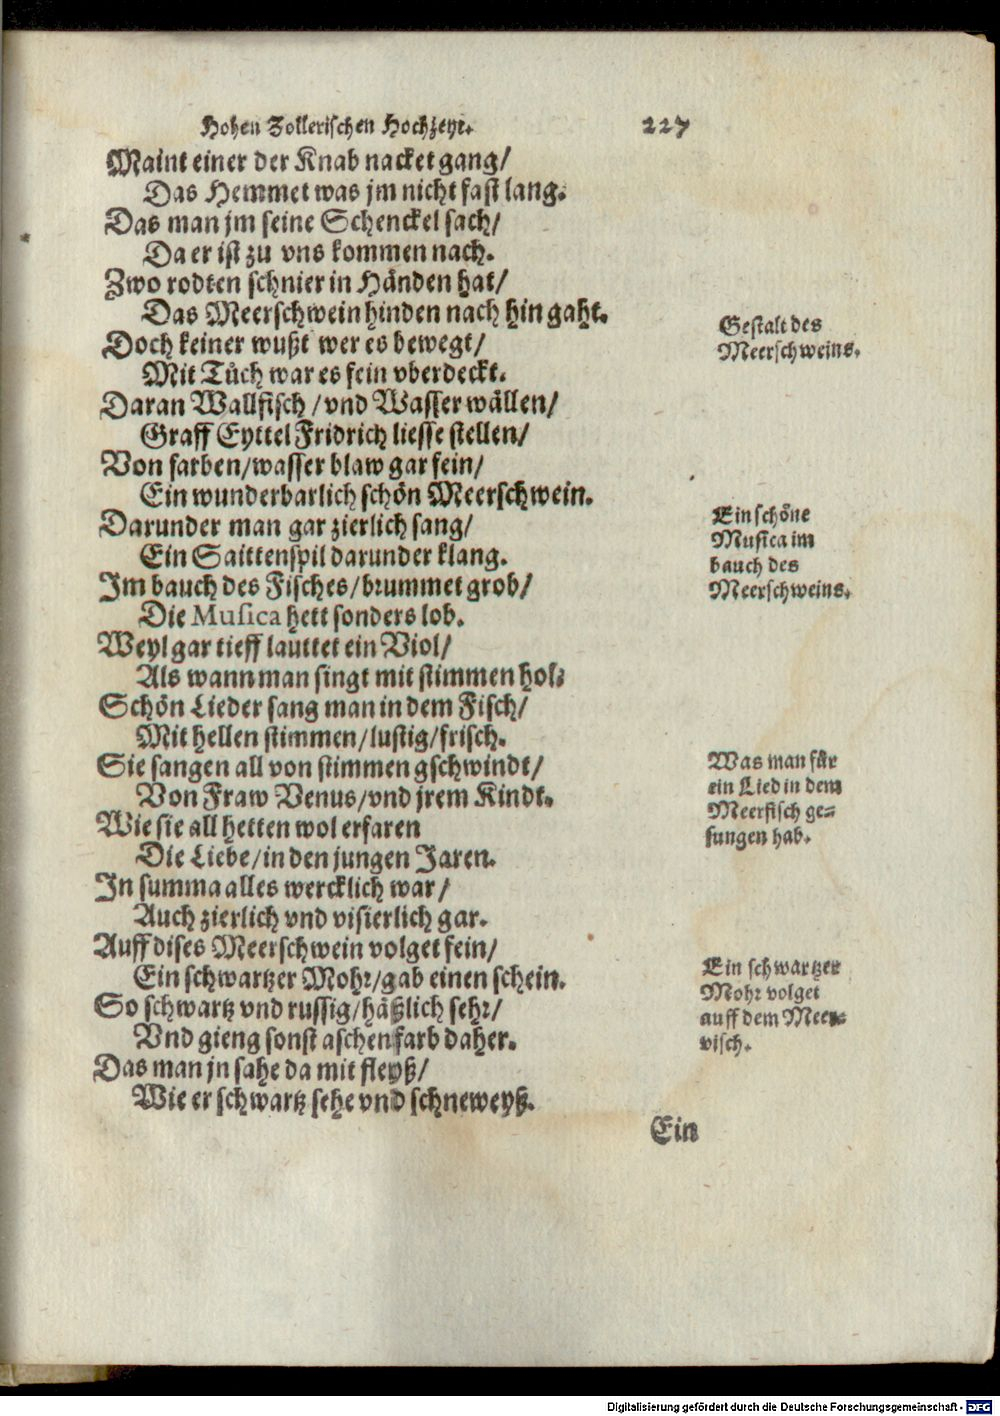 Hohen Zollerischen Hochzeyt. 227
Maint einer der Knab nacket gang/
Das Hemmet was jm nicht fast lang.
Das man jm seine Schenckel sach/
Da er ist zu vns kommen nach.
Zwo rodten schnier in Händen hat/
Das Meerschwein hinden nach hin gaht.
Gestalt des
Meerschweins.
Doch keiner wußt wer es bewegt/
Mit Tůch war es fein vberdeckt.
Daran Wallfisch/vnd Wasser wällen/
Graff Eyttel Fridrich liesse stellen/
Von farben/wasser blaw gar fein/
Ein wunderbarlich schön Meerschwein.
Darunder man gar zierlich sang/
Ein Saittenspil darunder klang.
Ein schöne
Musica im
bauch des
Meerschweins.
Im bauch des Fisches/brummet grob/
Die Musica hett sonders lob.
Weyl gar tieff lauttet ein Viol/
Als wann man singt mit stimmen hol:
Schön Lieder sang man in dem Fisch/
Mit hellen stimmen/lustig/frisch.
Sie sangen all von stimmen gschwindt/
Von Fraw Venus/vnd jrem Kindt.
Was man für
ein Lied in dem
Meerfisch ge-
sungen hab.
Wie sie all hetten wol erfaren
Die Liebe/in den jungen Jaren.
In summa alles wercklich war/
Auch zierlich vnd visierlich gar.
Auff dises Meerschwein volget fein/
Ein schwartzer Mohr/gab einen schein.
Ein schwartzer
Mohr volget
auff dem Meer-
visch.
So schwartz vnd russig/häßlich sehr/
Vnd gieng sonst aschenfarb daher.
Das man jn sahe da mit fleyß/
Wie er schwartz sehe vnd schneweyß.
Ein
Digitalisierung gefördert durch die Deutsche Forschungsgemeinschaft - DFG